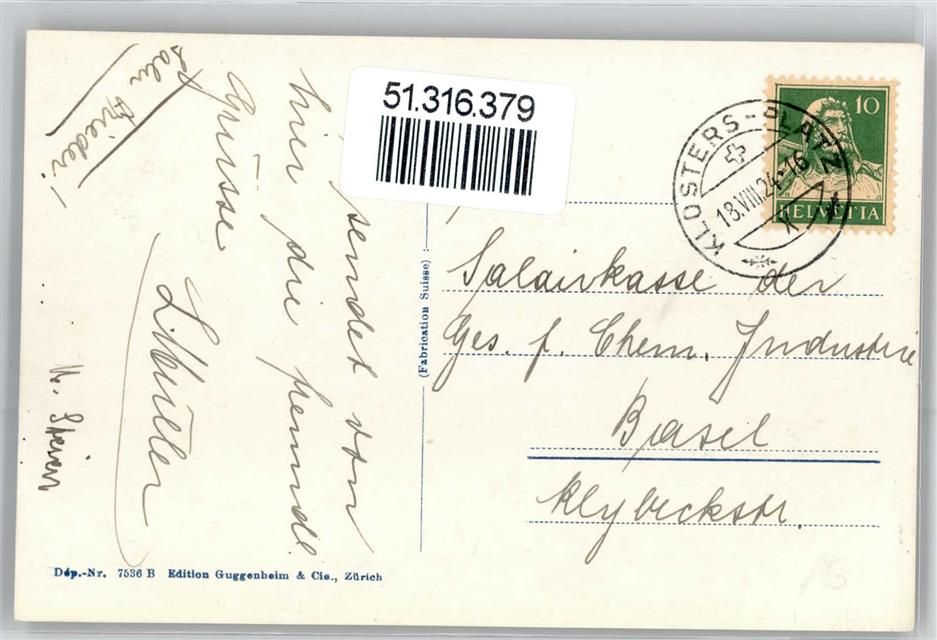 51.316.379
10
HELVETIA
KLOSTERS-PLATZ
18.VIII.24.-16
Salairkasse der
Ges. f. Chem. Industrie
Basel
Klybeckstr.
(Fabrication Suisse)
sendet von
hier die freundl.
Grüsse
L. Müller
Dép.-Nr. 7536 B Edition Guggenheim & Cie., Zürich